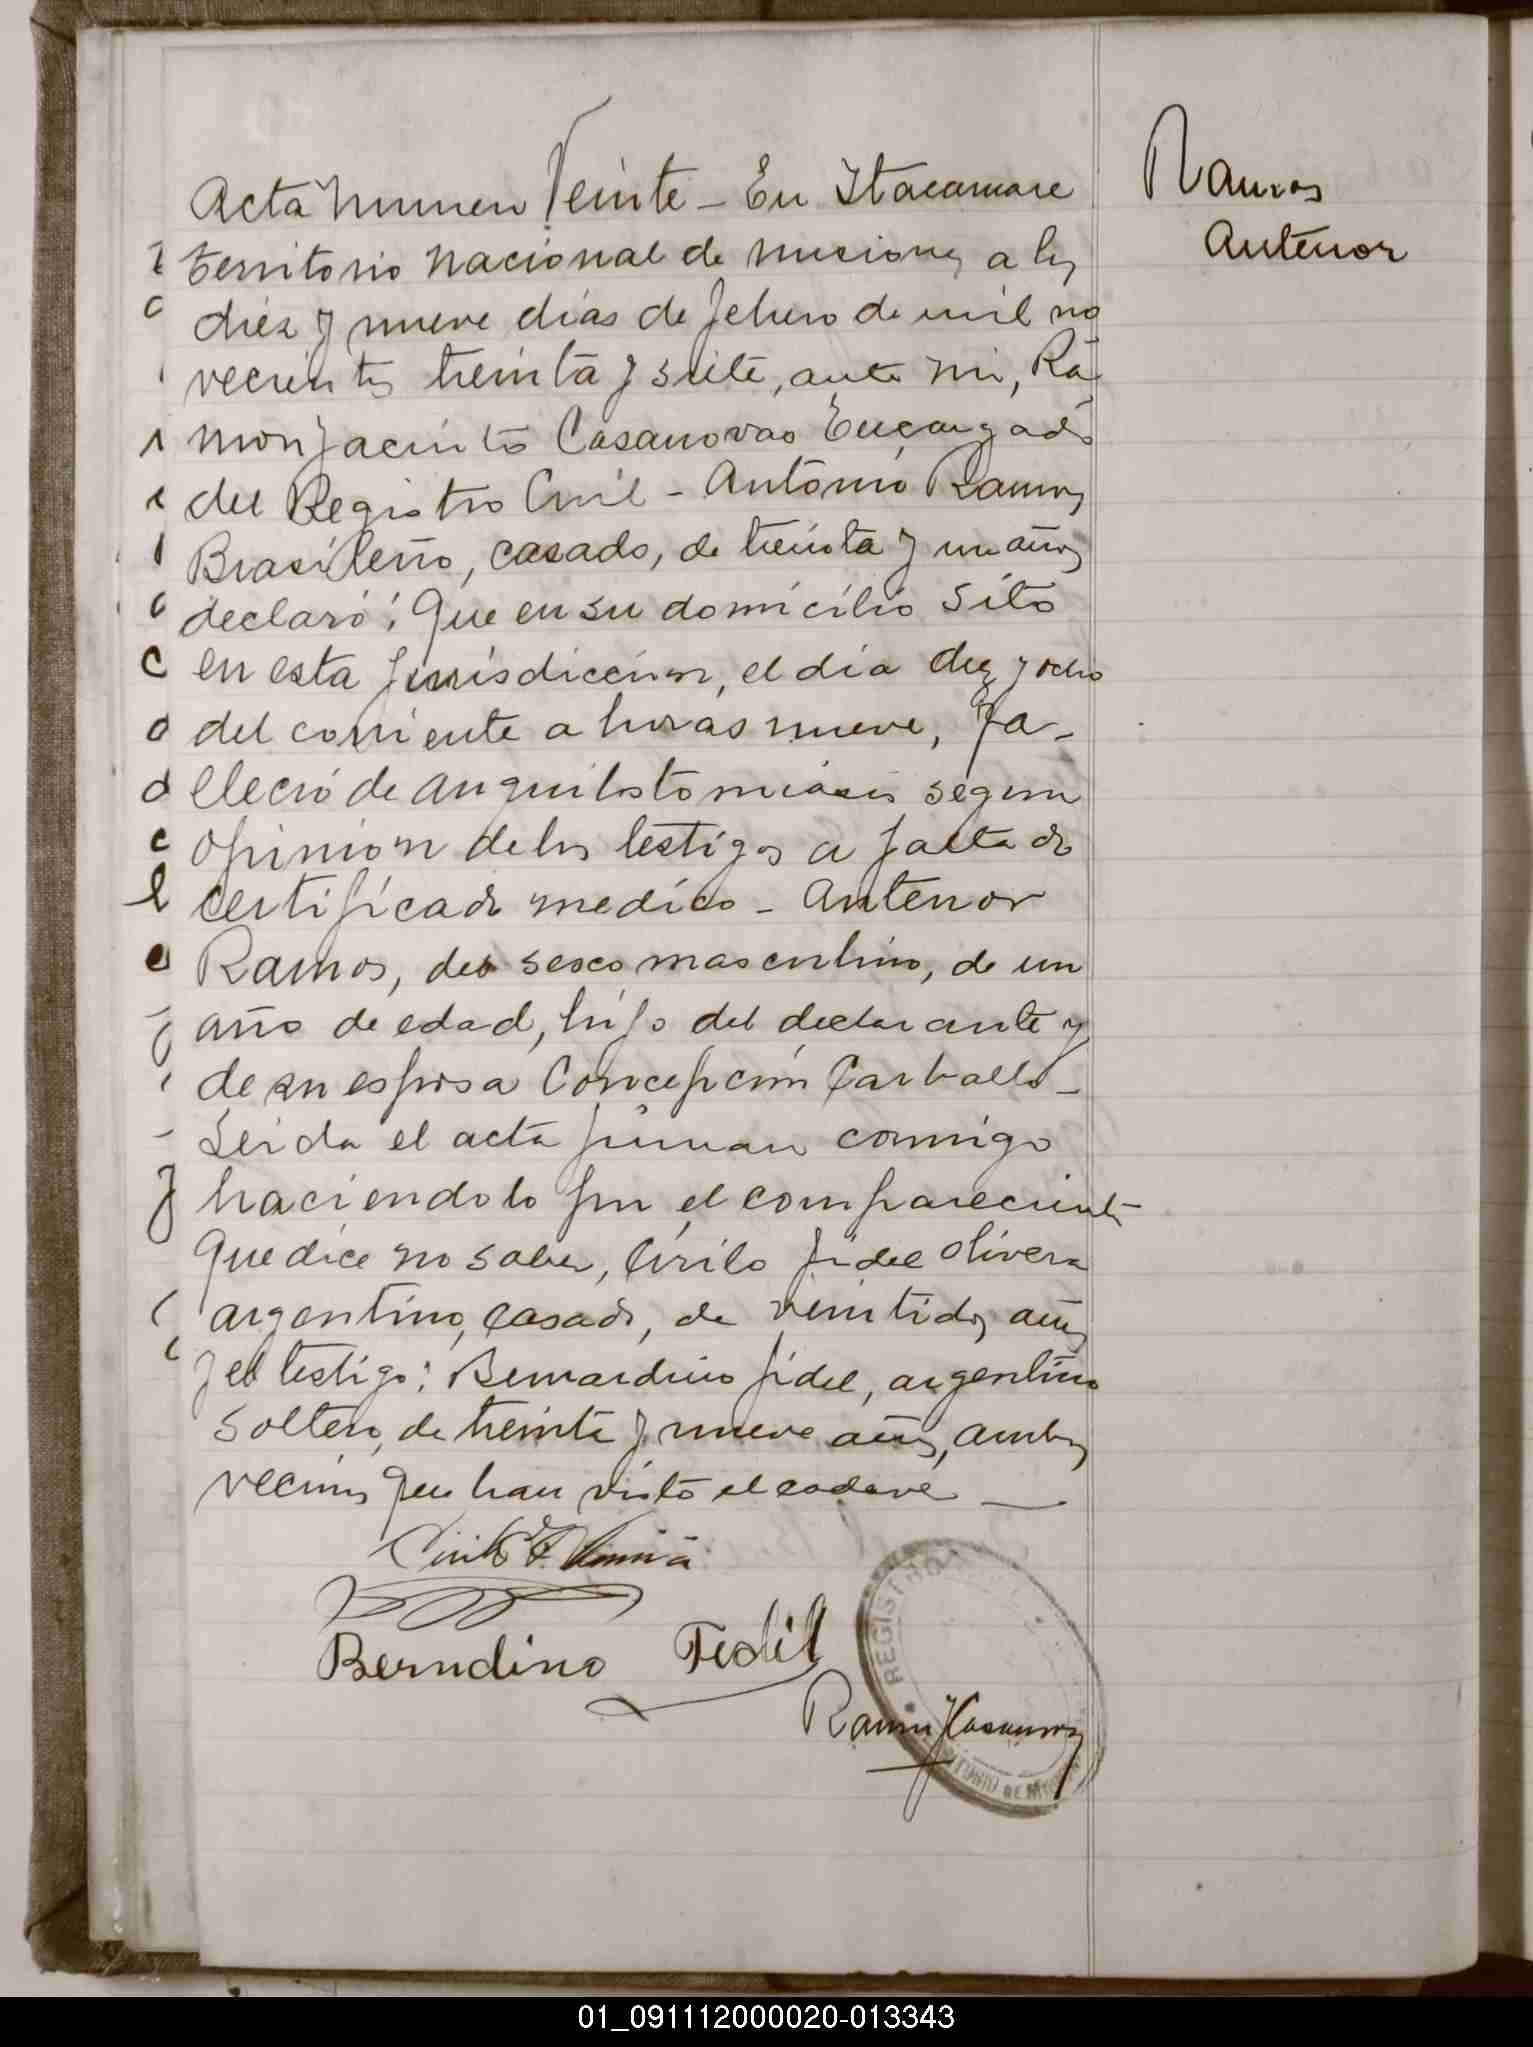 Ramos
Antenor
Acta Numero Veinte - En Itacaruare
territorio nacional de misiones a los
diez y nueve dias de febrero de mil no
vecientos treinta y siete, ante mi, Ra
mon Jacinto Casanovas Encargado
del Registro Civil - Antonio Ramos
Brasileño, casado, de treinta y un años
declaró: Que en su domicilio sito
en esta jurisdiccion, el dia diez y ocho
del corriente a horas nueve, fa-
lleció de anquilostomiasis segun
opinion de los testigos a falta de
certificado medico - Antenor
Ramos, del sexo masculino, de un
año de edad, hijo del declarante y
de su esposa Concepción Carballo -
Leida el acta firman conmigo
haciendolo por el compareciente
Que dice no saber, Cirilo Fidel Olivera
argentino, casado, de veintidos años
y el testigo: Bernardino Fidel, argentino
soltero, de treinta y nueve años, ambos
vecinos que han visto el cadave
Berndino Fedil
Ramon J Casanovas
REGISTRO
01_091112000020-013343